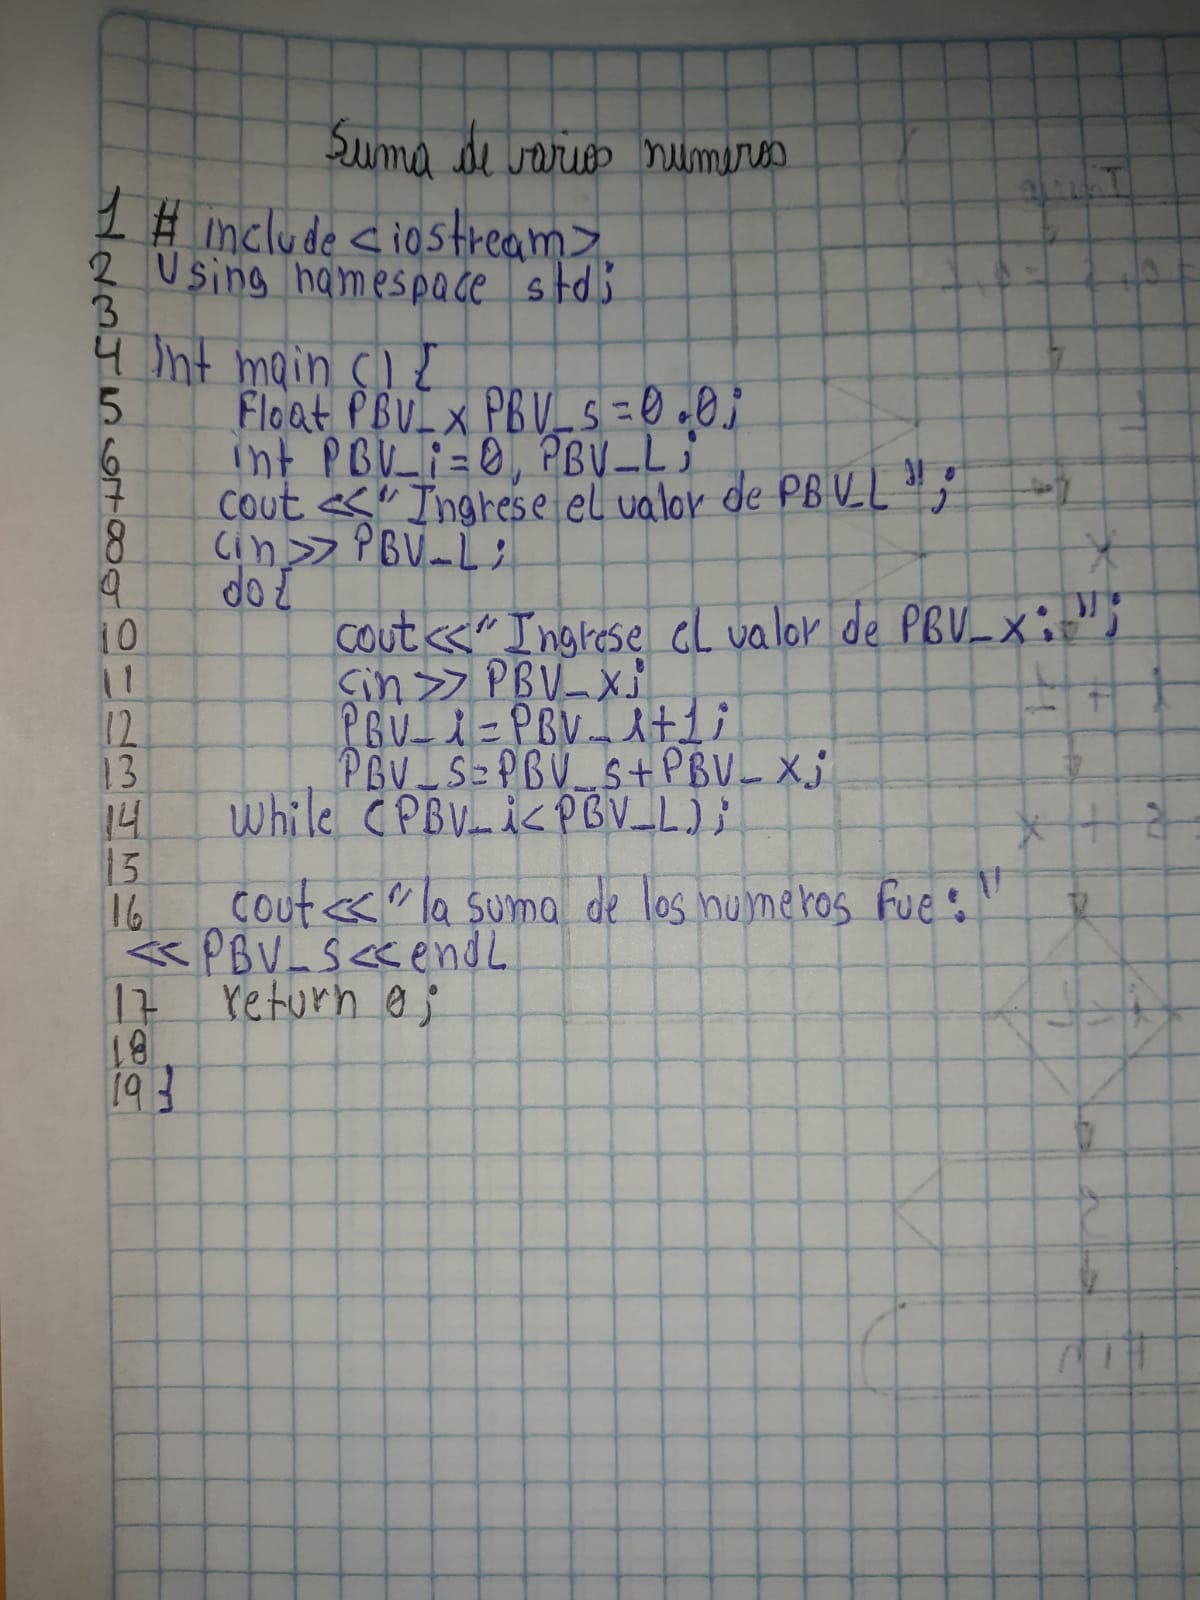 Suma de varios numeros
1 # include <iostream>
2 Using namespace std;
3
4 int main () {
5 Float PBV_x PBV_s = 0.0;
6 int PBV_i = 0, PBV_L;
7 cout << "Ingrese el valor de PBV_L";
8 cin >> PBV_L;
9 do{
10 cout << "Ingrese el valor de PBV_x:";
11 cin >> PBV_x;
12 PBV_i = PBV_i+1;
13 PBV_s = PBV_s + PBV_x;
14 While (PBV_i < PBV_L);
15
16 cout << "la suma de los numeros Fue:"
<< PBV_s << endL
17 return 0;
18
19 }